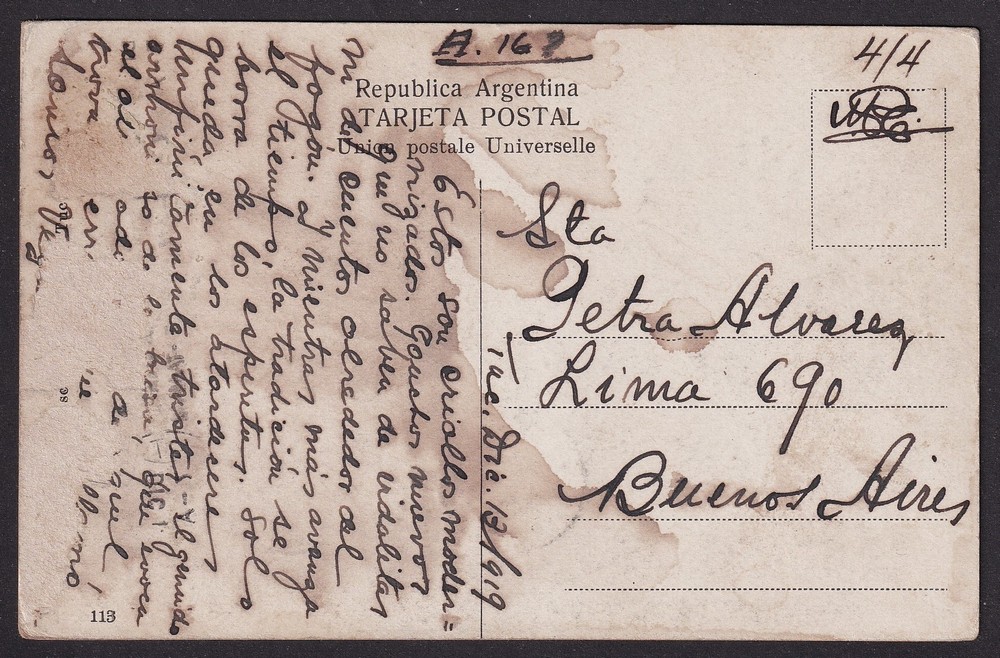 A. 167
4/4
Republica Argentina
TARJETA POSTAL
Union postale Universelle
Estos son criollos moder=
nizados. Gauchos nuevos
que no saben de vidalitas,
ni de cuentos alrededor del
fogón. Y mientras más avanza
el tiempo, la tradición se
borra de los espíritus. Solo
queda, en los atardeceres
infinitamente tristes, el gemido
de la
evoca
el
que
Dic. 13/919
Sta
Petra Alvarez
Lima 690
Buenos Aires
113